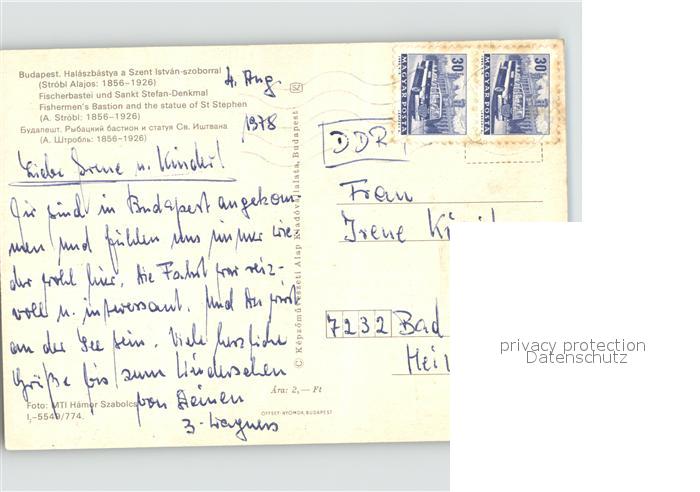 Budapest. Halászbástya a Szent István-szoborral
(Stróbl Alajos: 1856–1926)
Fischerbastei und Sankt Stefan-Denkmal
Fishermen's Bastion and the statue of St Stephen
(A. Stróbl: 1856–1926)
Будапешт. Рыбацкий бастион и статуя Св. Иштвана
(А. Штробль: 1856–1926)
4. Aug.
1978
Liebe Irene u. Kinder!
Wir sind in Budapest angekom-
men und fühlen uns immer wie-
der wohl hier. Die Fahrt war reiz-
voll u. interessant. Und
an der See sein. Viele herzliche
Grüße bis zum Wiedersehen
von Deinen
3
Foto: MTI Hámor Szabolcs
I,–5549/774.
© Képzőművészeti Alap Kiadóvállalata, Budapest
Ára: 2,— Ft
OFFSET-NYOMDA, BUDAPEST
52
30
MAGYAR POSTA
30
MAGYAR POSTA
DDR
Frau
Irene
7232 Bad
privacy protection
Datenschutz